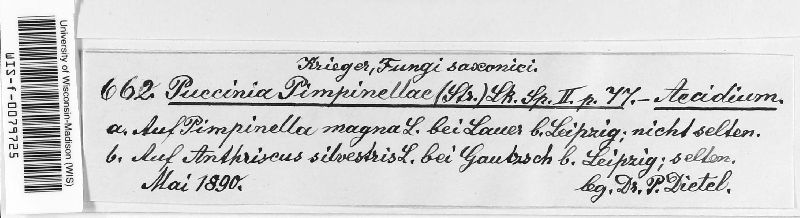 Krieger, Fungi saxonici.
662. Puccinia Pimpinellae (Str.) Lk. Sp. II. p. 77. – Aecidium.
a. Auf Pimpinella magna L. bei Lauer b. Leipzig; nicht selten.
b. Auf Anthriscus silvestris L. bei Gautzsch b. Leipzig; selten.
Mai 1890.
lg. Dr. P. Dietel.
University of Wisconsin-Madison (WIS)
WIS-f-0079725